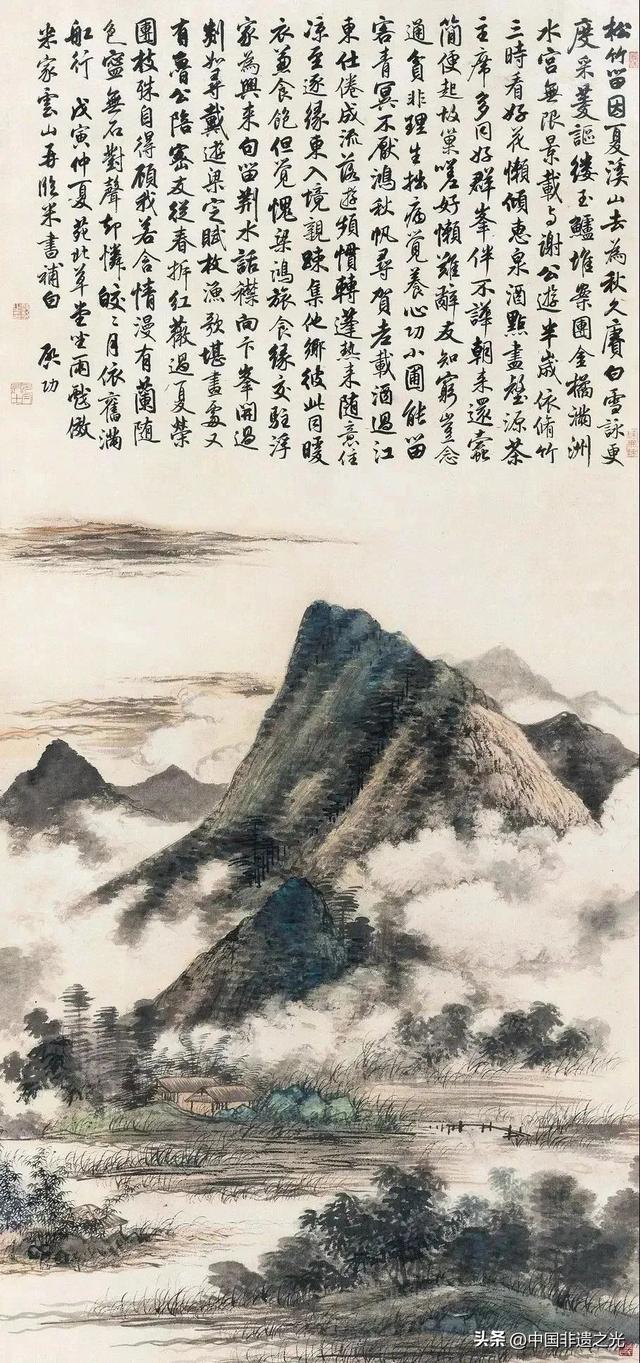 松竹留因夏溪山去為秋久賡白雪詠更
度采菱謳縷玉鱸堆案團金橘滿洲
水宮無限景載与謝公遊半歲依脩竹
三時看好花懶傾惠泉酒點盡壑源茶
主席多同好群峯伴不譁朝来還蠹
簡便起故巢嗟好懶難辭友知窮豈念
通貧非理生拙病覺養心功小圃能留
客青冥不厭鴻秋帆尋賀老載酒過江
東仕倦成流落遊頻慣轉蓬熱来隨意住
凉至逐緣東入境親踈集他鄉彼此同暖
衣兼食飽但覺愧梁鴻旅食緣交駐浮
家為興来句留荆水話襟向卞峯開過
剡如尋戴遊梁定賦枚漁歌堪畫處又
有魯公陪密友從春拆紅薇過夏榮
團枝殊自得顧我若含情漫有蘭隨
色寧無石對聲却憐皎々月依舊滿
舡行 戊寅仲夏苑北草堂坐雨戲倣
米家雲山再臨米書補白 啟功
头条 @中国非遗之光